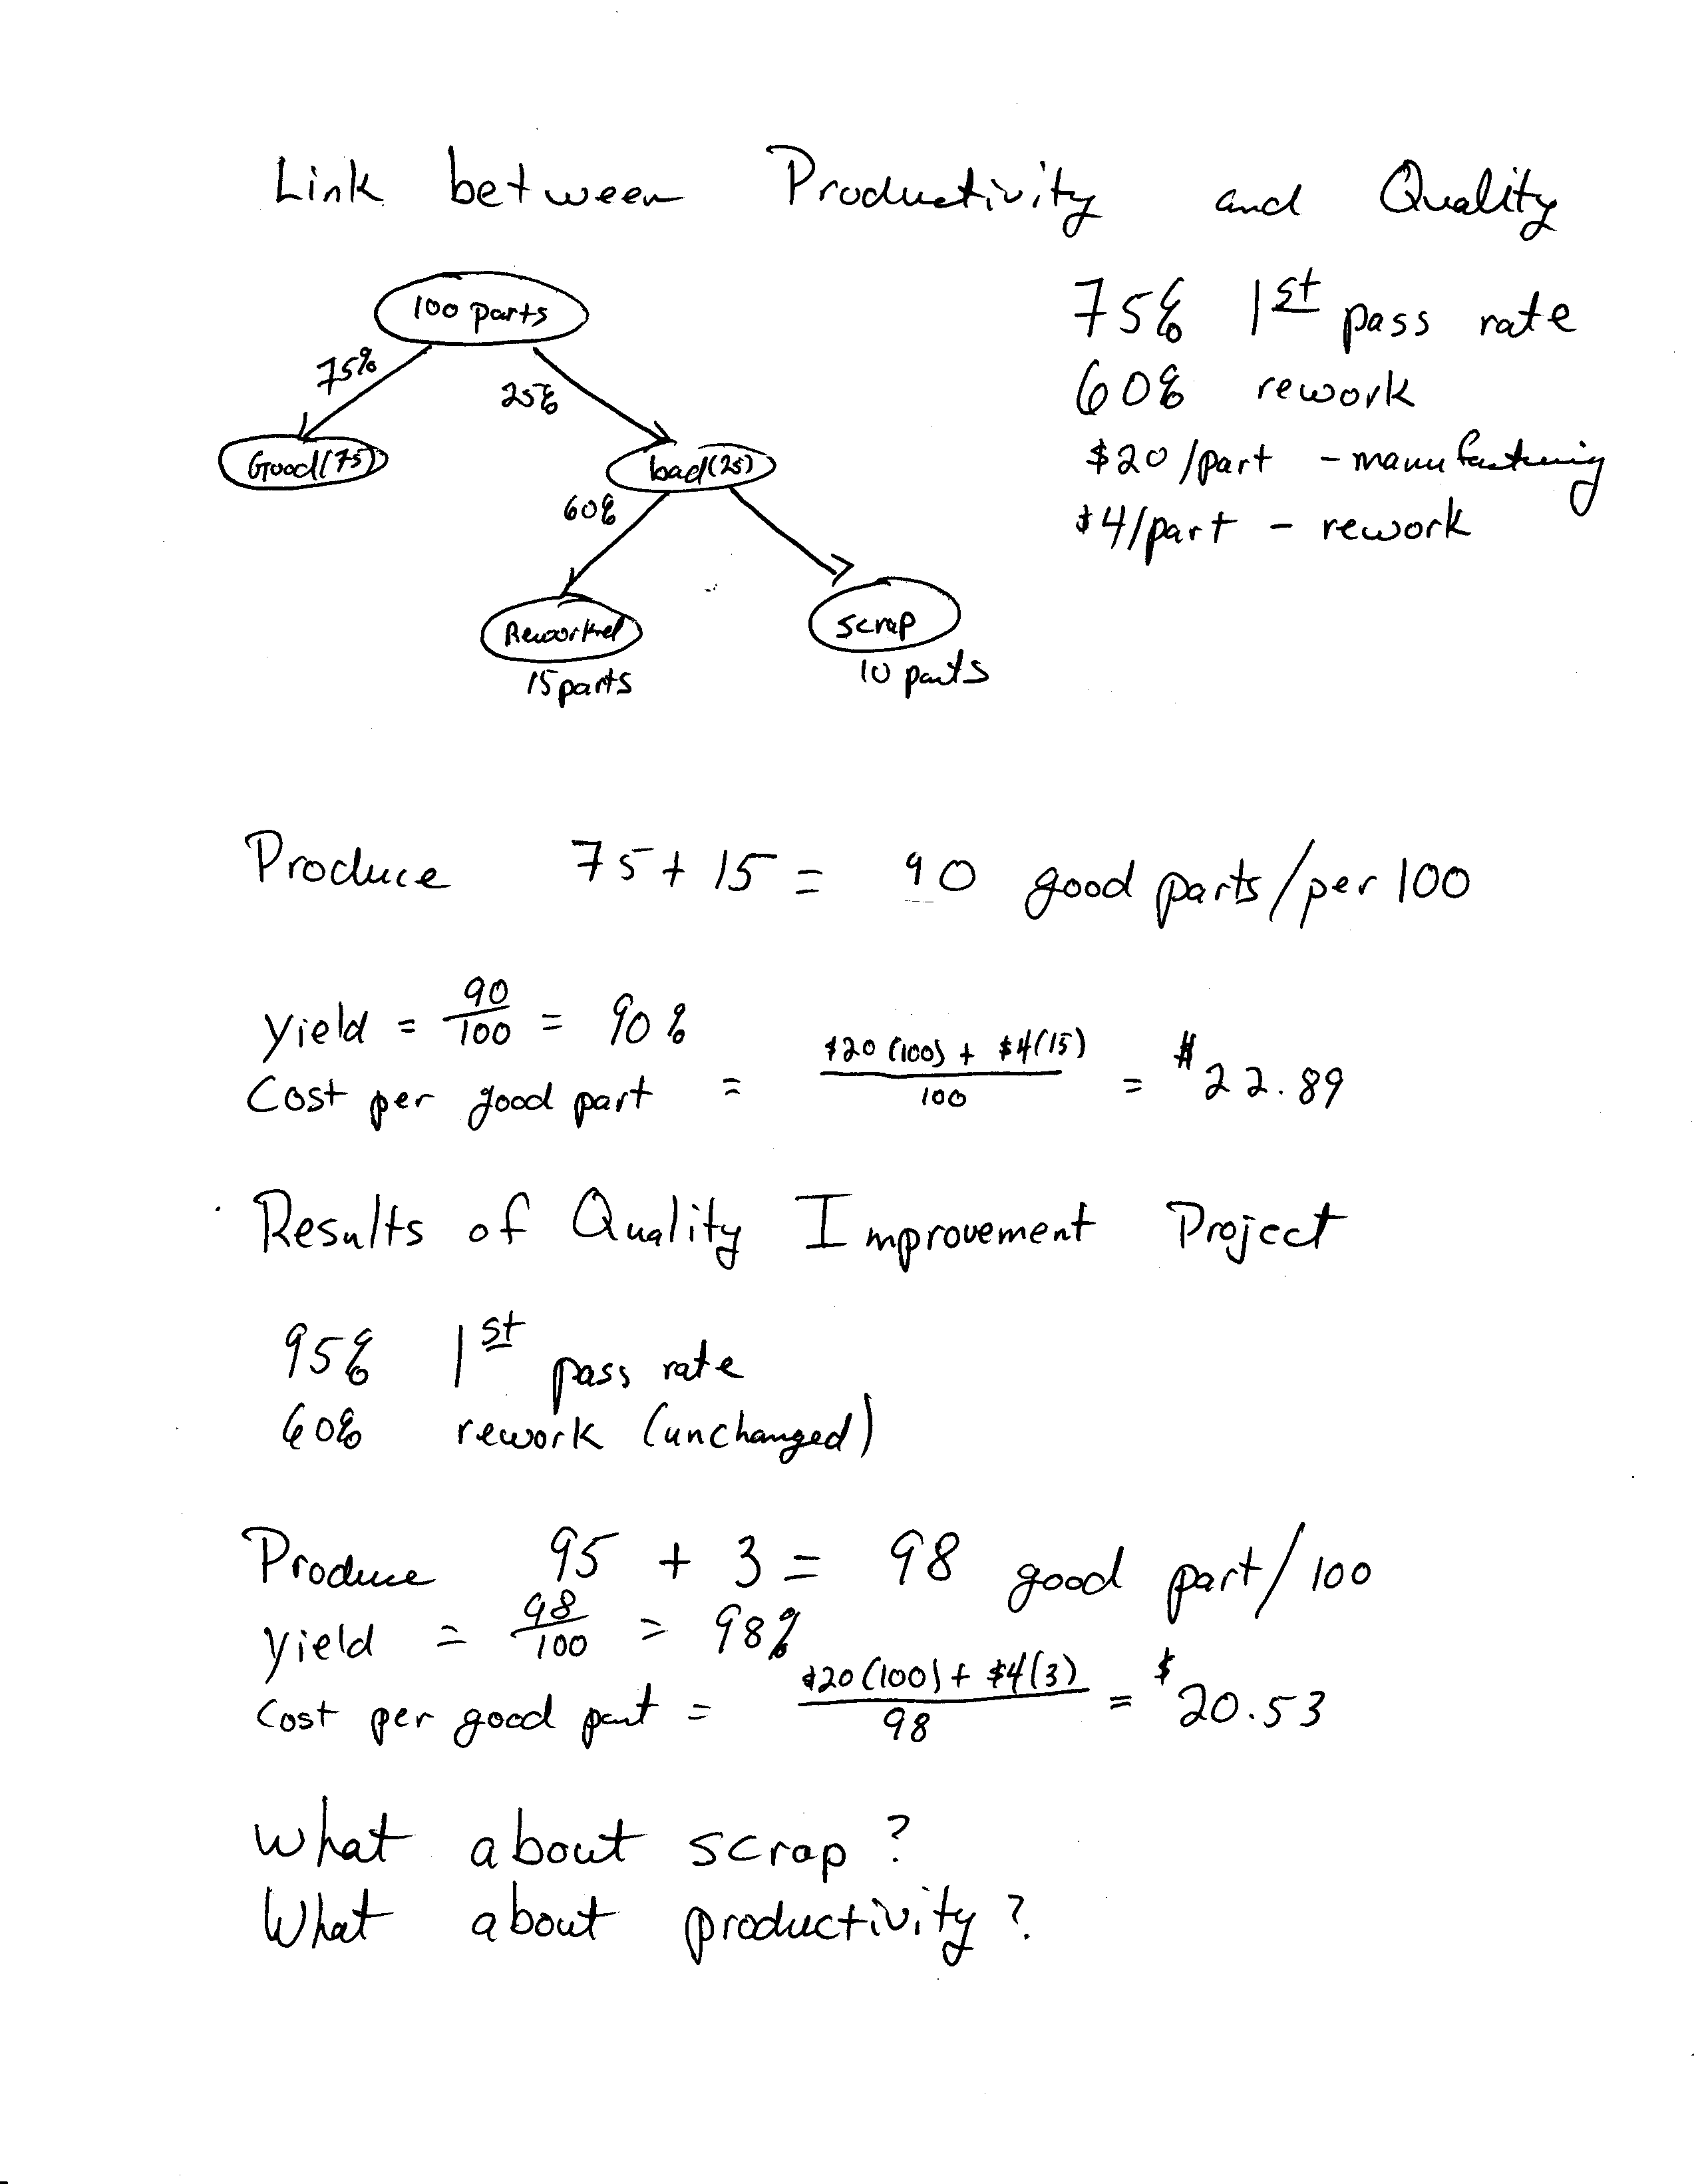 Link between Productivity and Quality
100 parts
75%
25%
Good (75)
bad (25)
60%
Reworked
15 parts
scrap
10 parts
75% 1st pass rate
60% rework
$20/part - manufacturing
$4/part - rework
Produce 75 + 15 = 90 good parts/per 100
yield = 90/100 = 90%
Cost per good part = $20(100) + $4(15) / 100 = $22.89
Results of Quality Improvement Project
95% 1st pass rate
60% rework (unchanged)
Produce 95 + 3 = 98 good part/100
yield = 98/100 = 98%
Cost per good part = $20(100) + $4(3) / 98 = $20.53
What about scrap?
What about productivity?